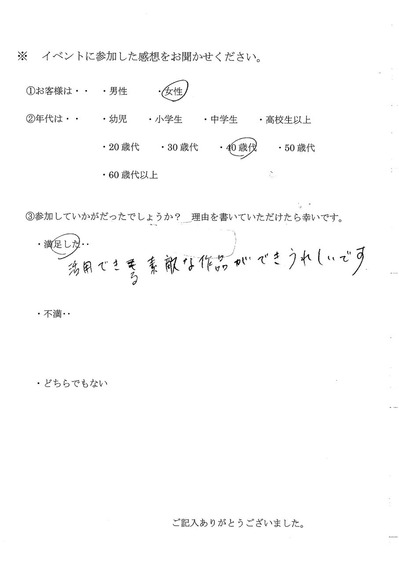 ※ イベントに参加した感想をお聞かせください。
①お客様は・・ ・男性 ・女性
②年代は・・ ・幼児 ・小学生 ・中学生 ・高校生以上
・20歳代 ・30歳代 ・40歳代 ・50歳代
・60歳代以上
③参加していかがだったでしょうか？ 理由を書いていただけたら幸いです。
・満足した・・
活用できる素敵な作品ができうれしいです
・不満・・
・どちらでもない
ご記入ありがとうございました。